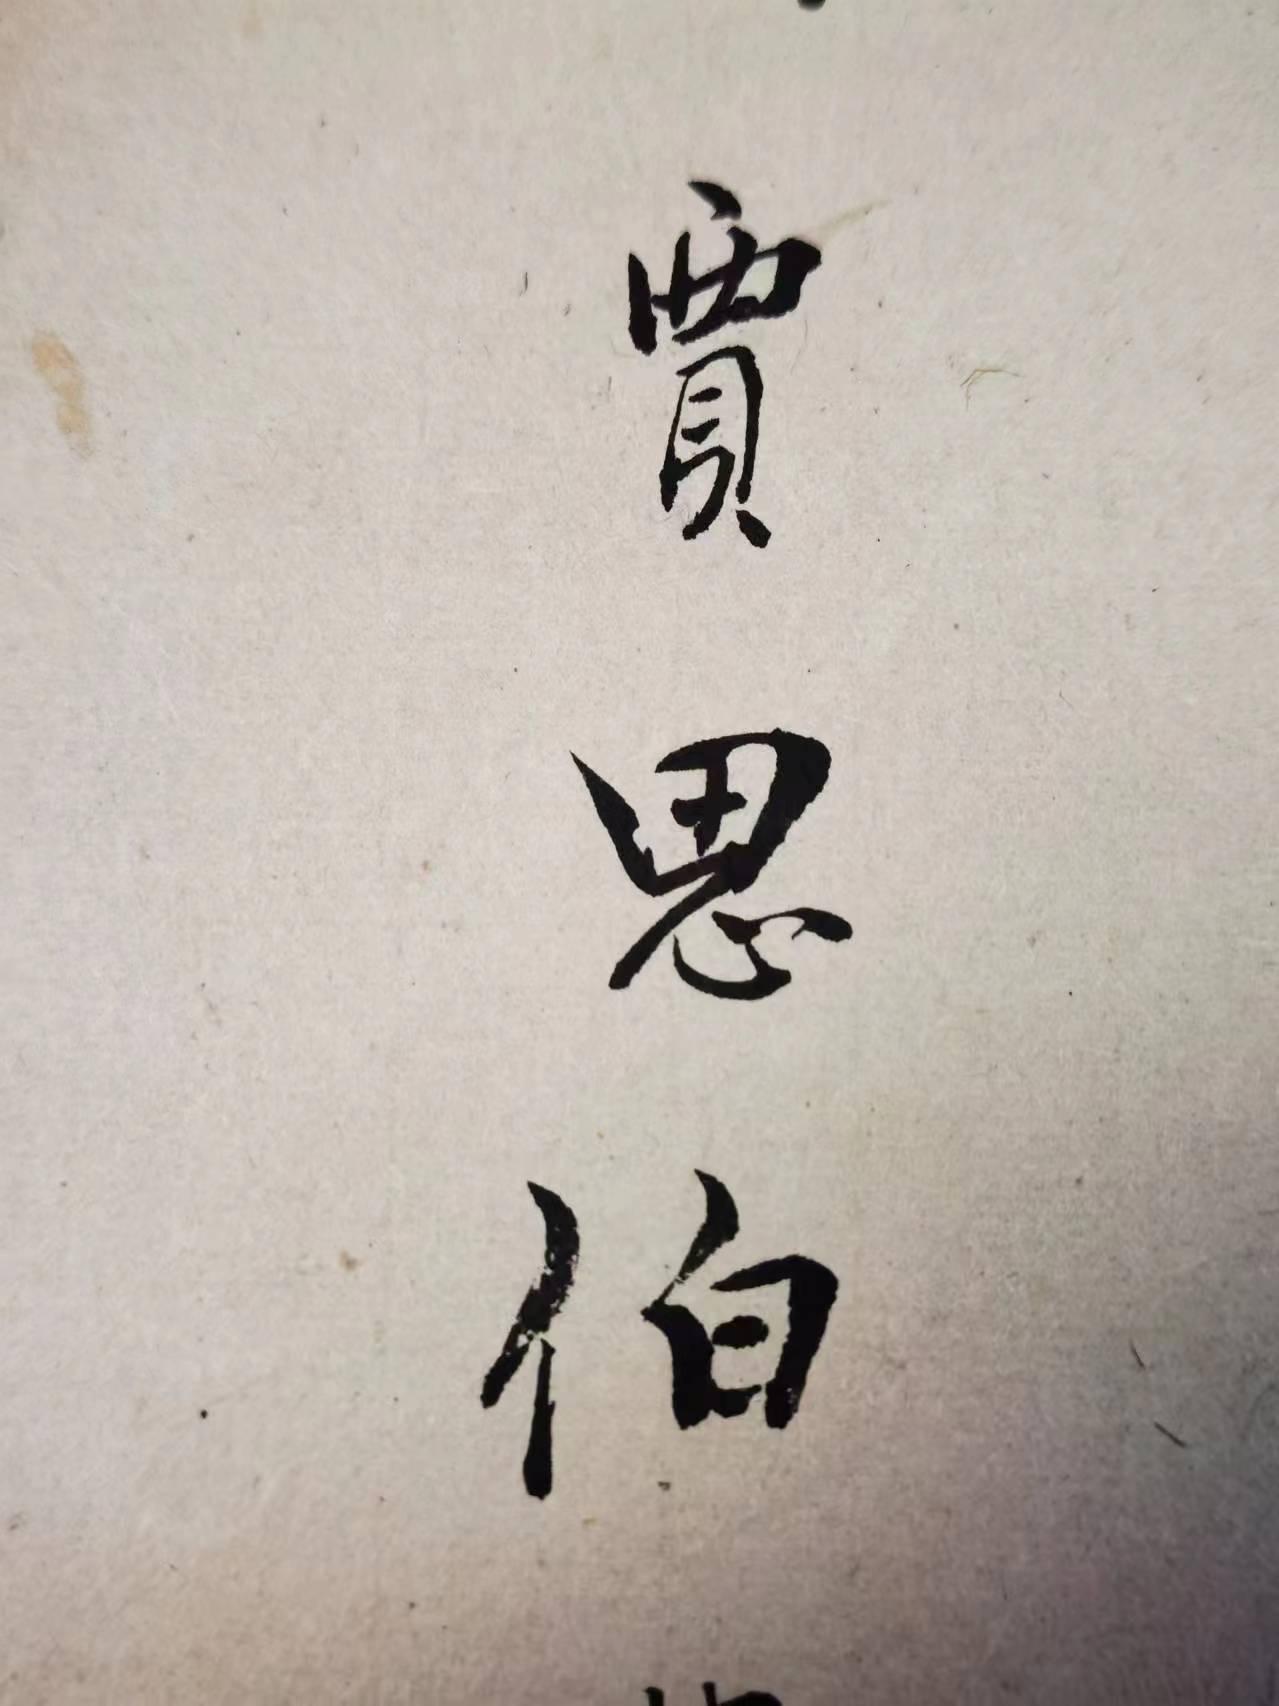 賈思伯